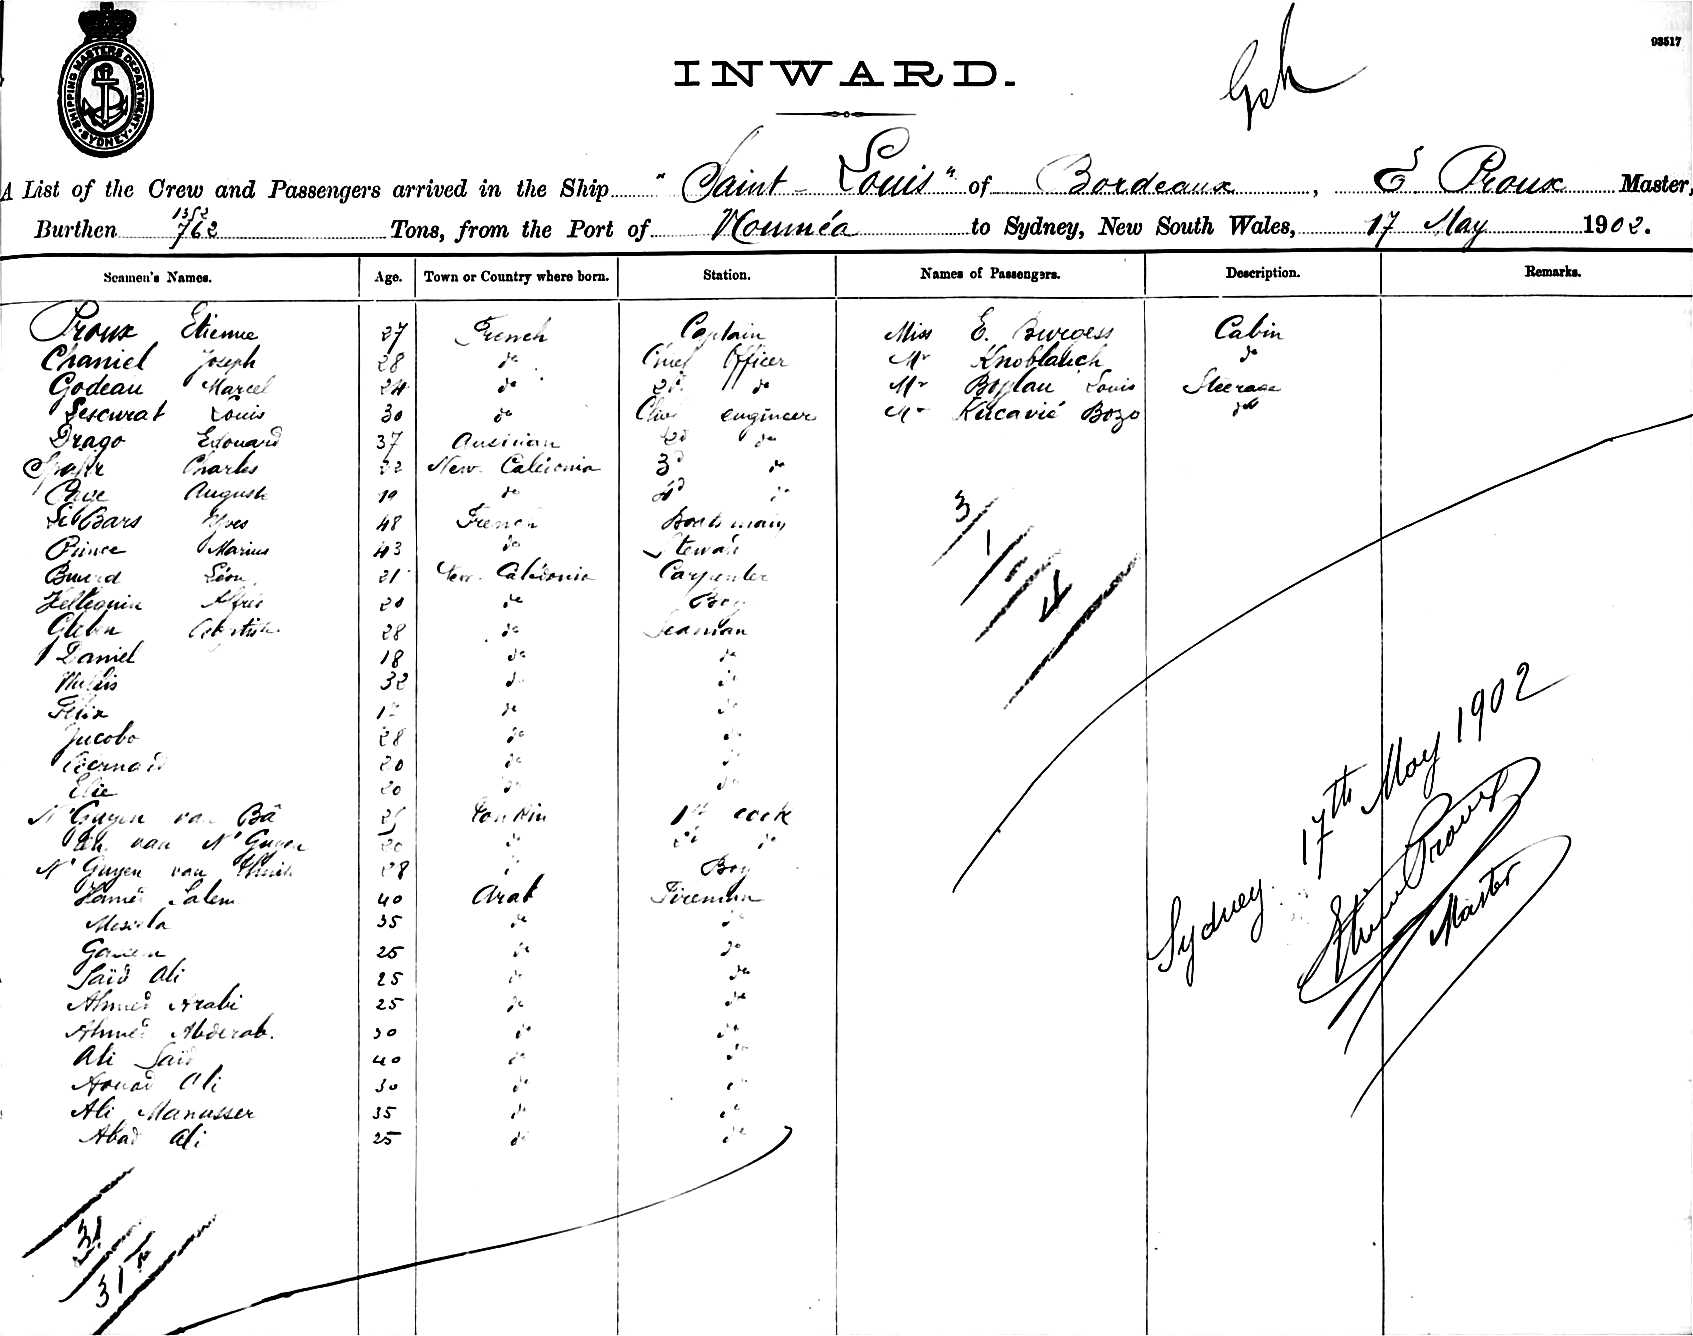 SHIPPING MASTERS DEPARTMENT SYDNEY
93517
INWARD.
A List of the Crew and Passengers arrived in the Ship "Saint-Louis" of Bordeaux, E. Proux Master,
Burthen 1352 762 Tons, from the Port of Nouméa to Sydney, New South Wales, 17 May 1902.
Seamen's Names. Age. Town or Country where born. Station. Names of Passengers. Description. Remarks.
Proux Etienne 27 French Captain Miss E. Burgess Cabin
Chaniel Joseph 28 do Chief Officer Mr Knoblauch do
Godeau Marcel 24 do 2d do Mr Louis Steerage
Lescurat Louis 30 do Chief engineer Mr Bozo do
Drago Edouard 37 Austrian 2d do
Charles 22 New Caledonia 3d do
August 19 do 4d do
Le Bars Yves 48 French Boatsmain
Prince Marius 43 do Steward
Léon 21 New Caledonia Carpenter
Alfred 20 do Boy
28 do Seaman
Daniel 18 do do
32 do do
Félix do do
Jacobo 28 do do
Bernard 20 do do
Elie 20 do do
N'Guyen van Bâ Tonkin 1st cook
van N'Guyen 20 2d do
N'Guyen van 28 do Boy
Hamed Salem 40 Arab Fireman
35 do do
25 do do
Saïd Ali 25 do do
Ahmed Arabi 25 do do
Ahmed Abderab. 30 do do
Ali Saïd 40 do do
Aouad Ali 30 do do
Ali Manasser 35 do do
Abad Ali 25 do do
3
1
4
31
31
Sydney. 17th May 1902
Etienne Proux
Master